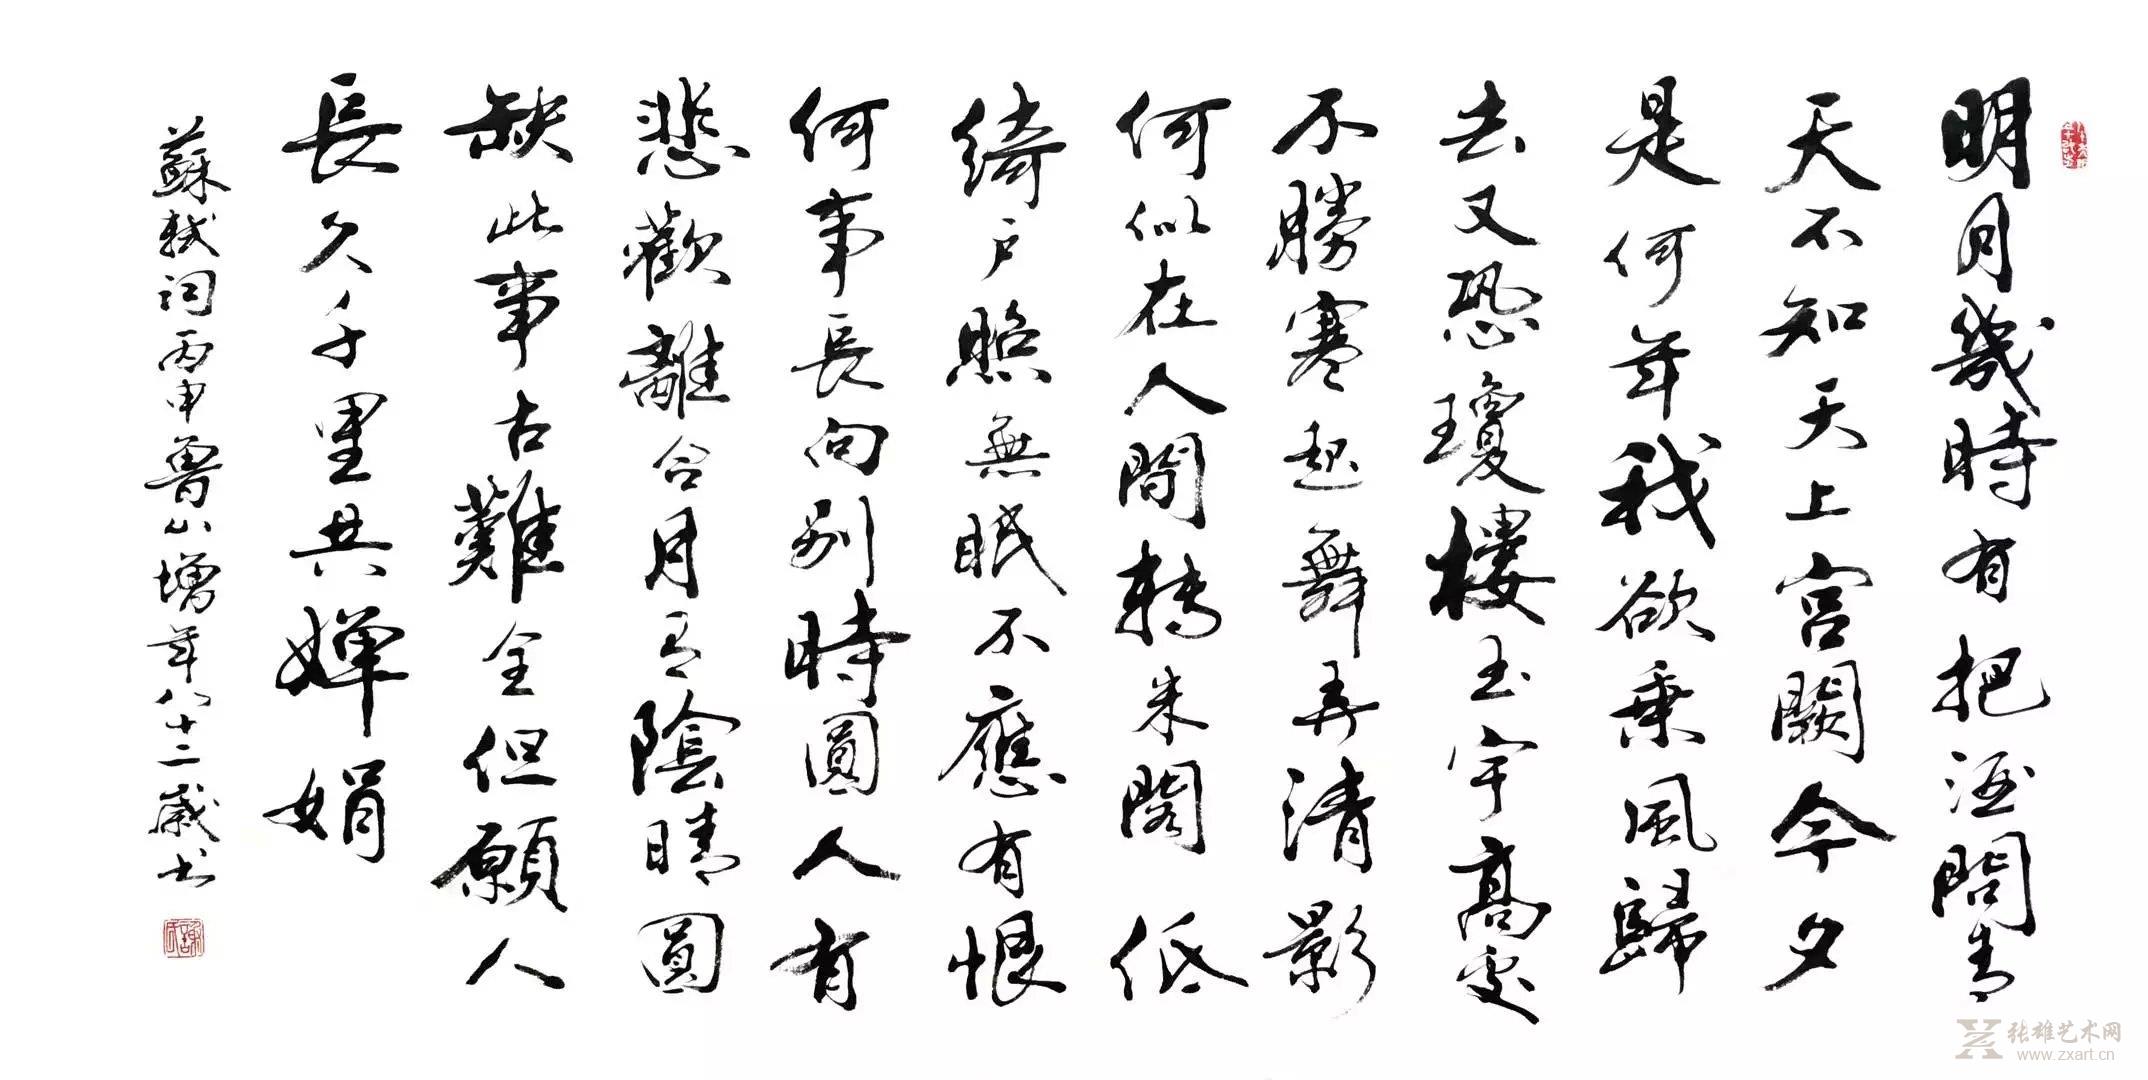 明月幾時有把酒問青
天不知天上宮闕今夕
是何年我欲乗風歸
去又恐瓊樓玉宇高處
不勝寒起舞弄清影
何似在人間轉朱閣低
綺户照無眠不應有恨
何事長向别時圓人有
悲歡離合月有陰晴圓
缺此事古難全但願人
長久千里共嬋娟
蘇軾詞丙申魯山增年八十二歲书
张雄艺术网
www.zxart.cn